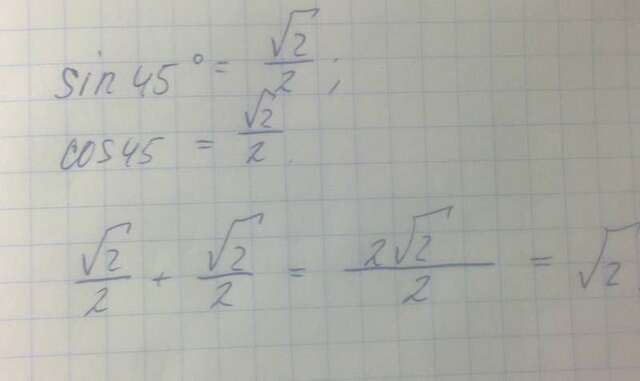 sin 45° = √2/2;
cos 45 = √2/2.
√2/2 + √2/2 = 2√2/2 = √2.